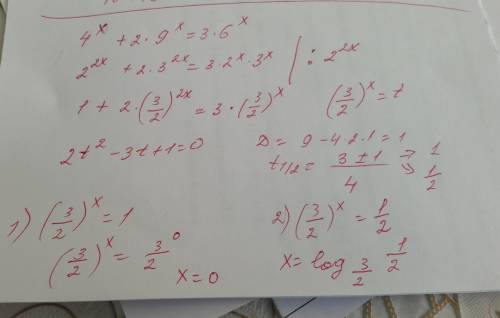 4^x + 2·9^x = 3·6^x
2^{2x} + 2·3^{2x} = 3·2^x·3^x | : 2^{2x}
1 + 2·(3/2)^{2x} = 3·(3/2)^x (3/2)^x = t
2t² - 3t + 1 = 0 D = 9 - 4·2·1 = 1
t_{1/2} = (3 ± 1)/4 → 1 → 1/2
1) (3/2)^x = 1 2) (3/2)^x = 1/2
(3/2)^x = 3/2^0 x = log_{3/2} 1/2
x = 0